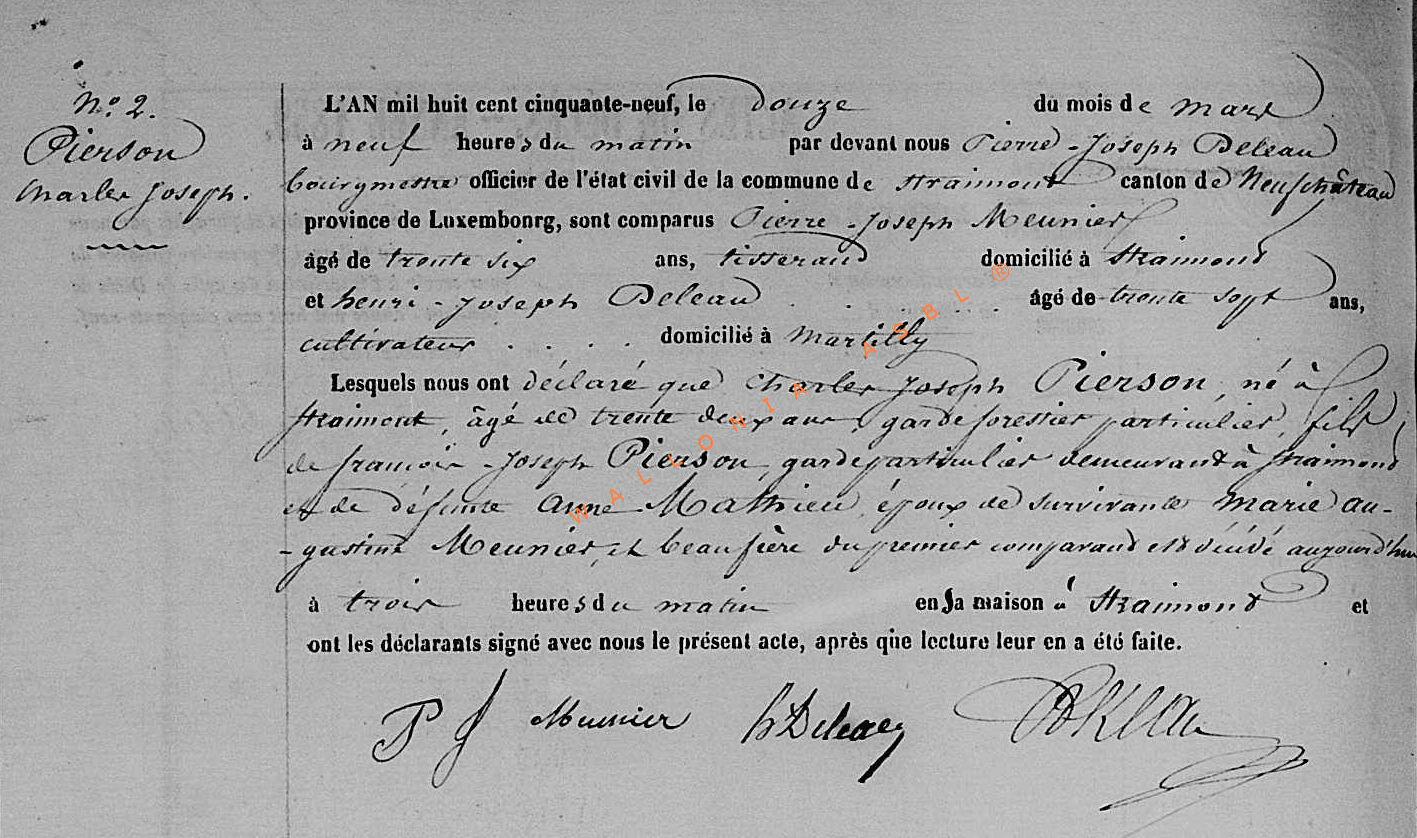 N.º 2.
Pierson
Charles Joseph.
L'AN mil huit cent cinquante-neuf, le Douze du mois de mars
à neuf heures du matin par devant nous Pierre-Joseph Deleau
bourgmestre officier de l'état civil de la commune de Straimont canton de Neufchâteau
province de Luxembourg, sont comparus Pierre-Joseph Meunier
âgé de trente six ans, tisserand domicilié à Straimont
et henri-Joseph Deleau . . . . . . âgé de trente sept ans,
cultivateur . . . . domicilié à Martilly
Lesquels nous ont déclaré que Charles Joseph Pierson, né à
Straimont, âgé de trente deux ans, garde forestier particulier, fils
de françois-Joseph Pierson, garde particulier demeurant à Straimont
et de défunte Anne Mathieu, époux de survivante Marie au-
-gustine Meunier, et beau frère du premier comparant est décédé aujourd'hui
à trois heures du matin en sa maison à Straimont et
ont les déclarants signé avec nous le présent acte, après que lecture leur en a été faite.
P J Meunier h Deleau Deleau
WALLONIA ASBL ®